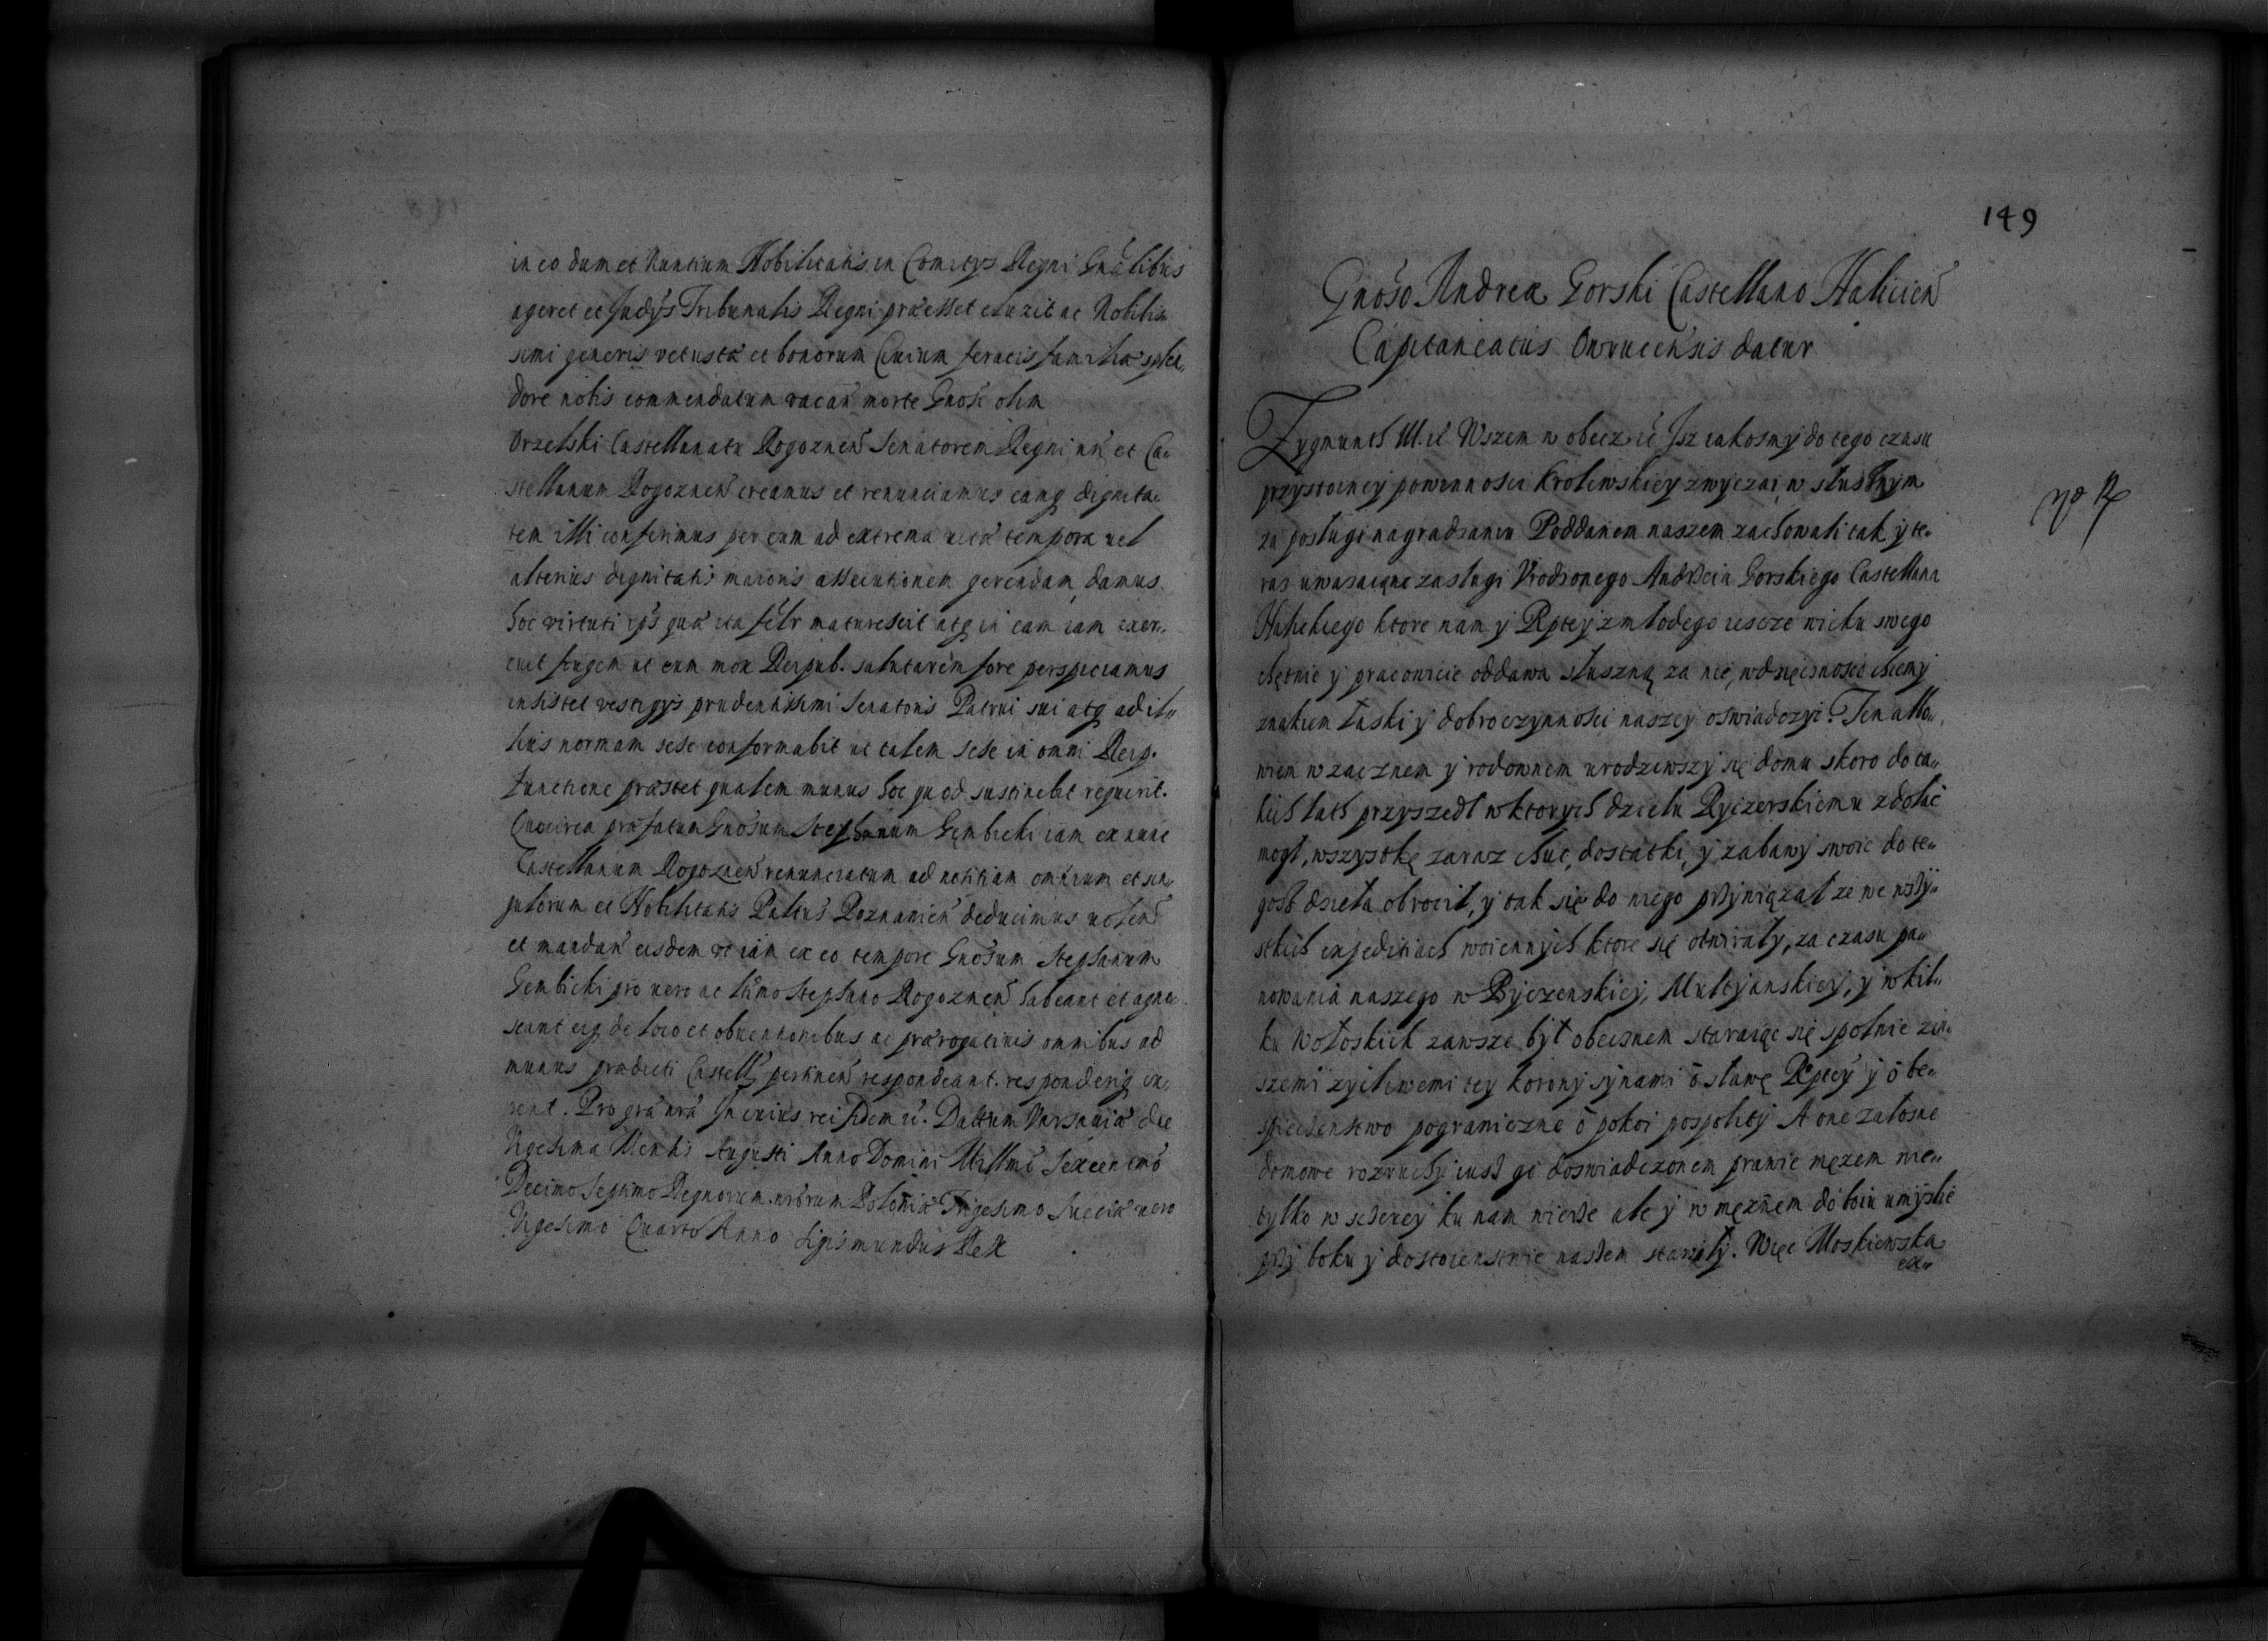 in eo dum et Nuntium Nobilitatis in Comitys Regni Gnalibus
ageret et Judys Tribunalis Regni præesset eluxit ac Nobilis
simi generis vetusta et bonorum Civium feracis familiæ splen„
dore nobis commendatum vacan morte Gnosi olim
Orzelski Castellanatu Rogoznen Senatorem Regni nri et Ca„
stellanum Rogoznen creamus et renunciamus eamq dignita„
tem illi conferimus per eum ad extrema vitæ tempora vel
alterius dignitatis maioris assecutionem gerendam, damus
hoc virtuti ips quæ ita felr maturescit atq in eam iam exer„
cuit frugem ut eum mox Reipub. salutarem fore perspiciamus
insistet vestigys prudentissimi Senatoris Patrui sui atq ad il„
lius normam sese conformabit ut talem sese in omni Reip.
functione præstet qualem munus hoc quod sustinebit requirit.
Quocirca præfatum Gnosum Stephanum Gembicki iam ex nunc
Castellanum Rogoznen renunciatum ad notitiam omnium et sin„
gulorum et Nobilitatis Paltus Poznanien deducimus volen
et mandan eisdem ut iam ex eo tempore Gnosum Stephanum
Gembicki pro vero ac ltimo Stephano Rogoznen habeant et agno„
scant eiq de loco et obventionibus ac prærogativis omnibus ad
munus prædicti Castell pertinen respondeant. responderiq cu„
rent. Pro gra nra In cuius rei fidem &. Dattum Varsaviæ die
Vigesima Mensis Augusti Anno Domini Millmo Sexcentmo
Decimo Septimo Regnorum nrorum Poloniæ Trigesimo Sueciæ vero
Vigesimo Quarto Anno Sigismundus Rex
149
Gnoso Andreæ Gorski Castellano Halicien
Capitaneatus Owrucensis datur
Zygmunth III. &c Wszem w obecz &c Isz iakosmy do tego czasu
przystoiney powinnosci Krolewskiey zwyczai, w słusznym
za posługi nagradzaniu Poddanem naszem zachowali tak y te„
ras uwazaiąc zaslugi Vrodzonego Andrzeia Gorskiego Castellana
Halickiego ktore nam y Rptey z młodego iescze wieku swego
chętnie y pracowicie oddawa słuszną za nie, wdzięcznosc chcemy
znakiem łaski y dobroczynnosci naszey oswiadczyc. Ten albo„
wiem w zacznem y rodownem urodziwszy się domu skoro do ta„
kich lath przyszedl w ktorych dziełu Ryczerskiemu zdołać
mogł, wszystkę zaraz chuc, dostatki, y zabawy swoie do te„
gosz dzieła obrocił, y tak się do niego przywiązał ze we wszy„
stkich expeditiach woiennych ktore się otwirały, za czasu pa„
nowania naszego w Byczenskiey, Multyanskiey, y w kil„
ku Wołoskich zawsze był obecznem staraiąc się społnie z in„
szemi zyczliwemi tey korony synami o sławę Rptey y o be„
spieczenstwo pograniczne o pokoi pospolity A one załosne
domowe rozruchy iusz go doswiadczonem prawie męzem nie„
tylko w sczerey ku nam wierze ale y w męznem do boiu umysle
przy boku y dostoienstwie naszem stawiły. Więc Moskiewska
ex„